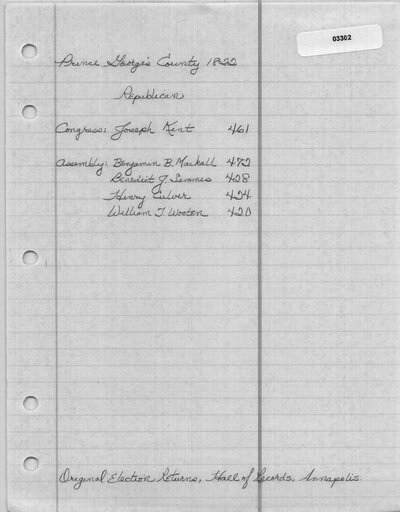 03302
Prince George's County 1822
Republican
Congress: Joseph Kent 461
Assembly: Benjamin B. Mackall 472
Benedict J. Semmes 428
Henry Culver 424
William T Wooten 420
Original Election Returns, Hall of Records, Annapolis